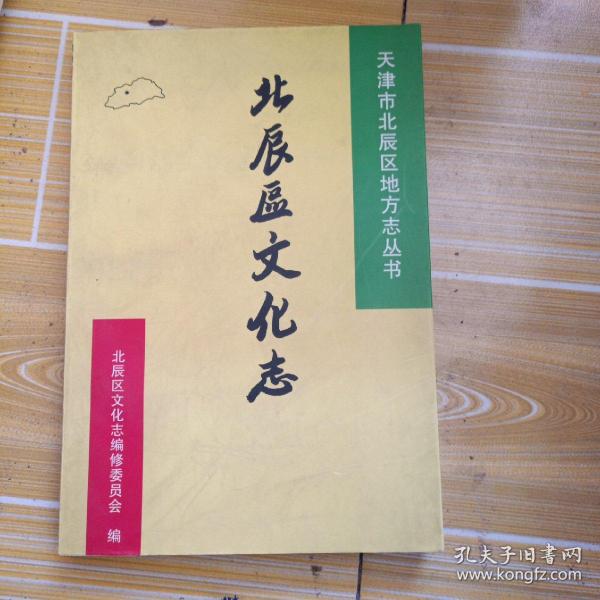 天津市北辰区地方志丛书
北辰區文化志
北辰区文化志编修委员会 编
孔夫子旧书网
www.kongfz.com